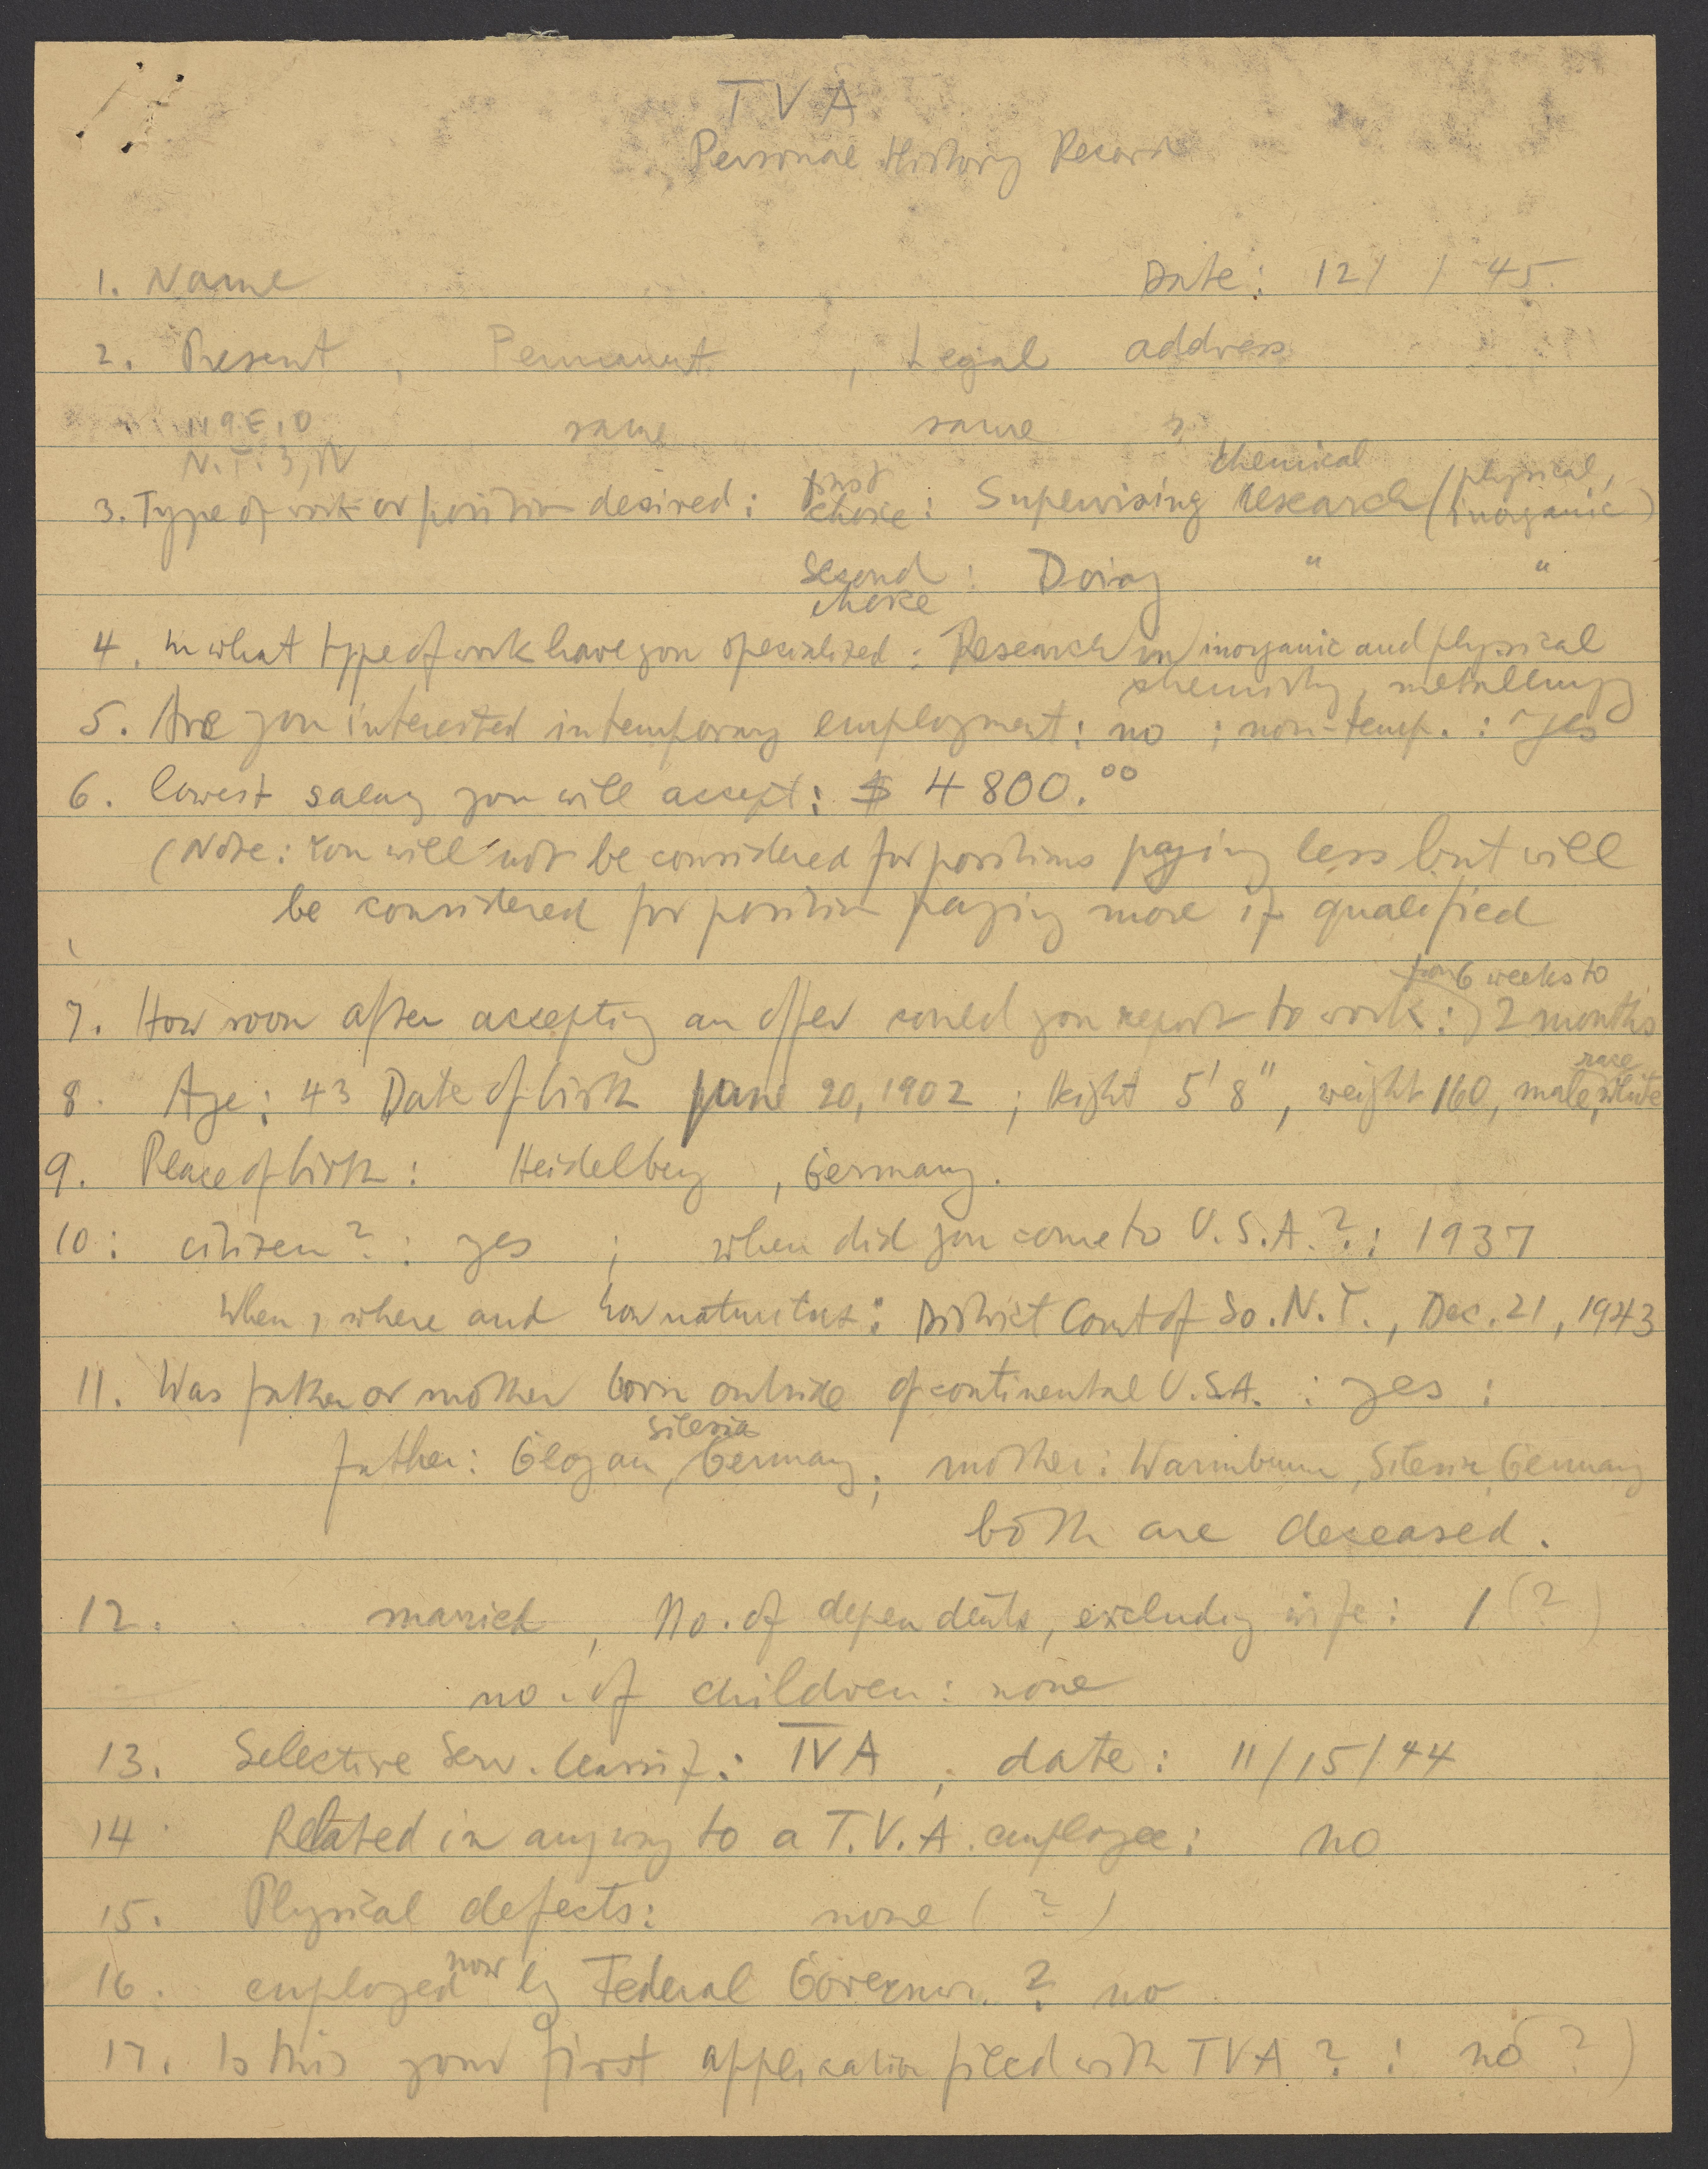 T V A
Personal History Record
1. Name Date: 12/ / 45
2. Present , Permanent , Legal address
119 E. D same same ?
N.Y. 3, N
3. Type of work or position desired: first choice: Supervising chemical research (physical, inorganic)
second choice: Doing " "
4. In what type of work have you specialized: Research in inorganic and physical
chemistry, metallurgy
5. Are you interested in temporary employment: no ; non-temp. : yes
6. lowest salary you will accept: $ 4800.00
(Note: You will not be considered for positions paying less but will
be considered for position paying more if qualified
7. How soon after accepting an offer could you report to work: from 6 weeks to 2 months
8. Age: 43 Date of birth June 20, 1902 ; Height 5' 8", weight 160, male, race white
9. Place of birth: Heidelberg , Germany.
10: citizen? : yes ; when did you come to U.S.A.?: 1937
When, where and how : District Court of So. N.Y., Dec. 21, 1943
11. Was father or mother born outside of continental U.S.A. : yes :
father: Glogau, Silesia Germany; mother: Warmbrunn, Silesia, Germany
both are deceased.
12. married, No. of dependents, excluding wife: 1 (?)
no. of children: none
13. Selective Serv. Classif.: IV A , date: 11/15/44
14 Related in any way to a T.V.A. employee: no
15. Physical defects: none ( ? )
16. employed now by Federal Governm. ? no
17. Is this your first application filed with TVA ? : no ? )